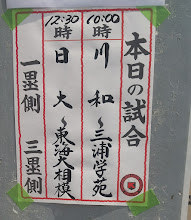 本日の試合
10:00時
川和〜三浦学苑
12:30時
日大〜東海大相模
一塁側 三塁側